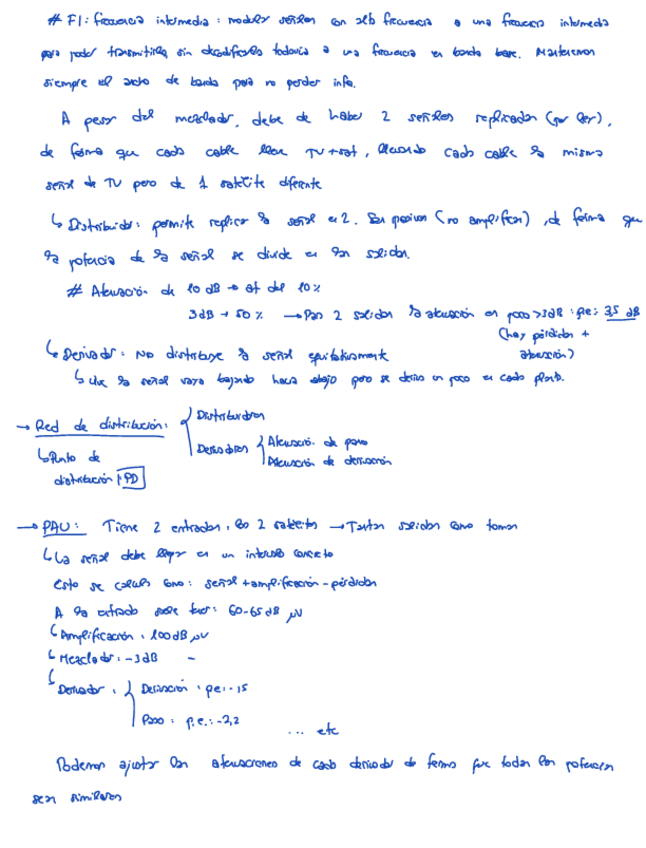 # FI: frecuencia intermedia: modular señales con alta frecuencia a una frecuencia intermedia
para poder transmitirla sin decodificarla todavía a una frecuencia en banda base. Mantenemos
siempre el ancho de banda para no perder info.
A pesar del mezclador, debe de haber 2 señales replicadas (por ley),
de forma que cada cable lleve TV+sat, llevando cada cable la misma
señal de TV pero de 1 satélite diferente
↳ Distribuidor: permite replicar la señal en 2. Son pasivos (no amplifican), de forma que
la potencia de la señal se divide en las salidas.
# Atenuación de 10 dB → at del 10%
3dB → 50% → Para 2 salidas la atenuación es poco >3dB: pe: 3,5 dB
(hay pérdidas +
atenuación)
↳ Derivador: No distribuye la señal equitativamente
↳ Que la señal vaya bajando hacia abajo pero se deriva un poco en cada planta.
→ Red de distribución: { Distribuidores
Derivadores { Atenuación de paso
Atenuación de derivación
↳ Punto de
distribución: PD
→ PAU: Tiene 2 entradas, los 2 satélites → Tantas salidas como tomas
↳ La señal debe llegar en un intervalo concreto
Esto se calcula como: señal + amplificación - pérdidas
A la entrada suele haber: 60-65 dB µV
↳ Amplificación: 100 dB µV
↳ Mezclador: -3dB -
↳ Derivador: { Derivación: pe: -15
Paso: p.e.: -2,2
... etc
Podemos ajustar las atenuaciones de cada derivador de forma que todas las potencias
sean similares